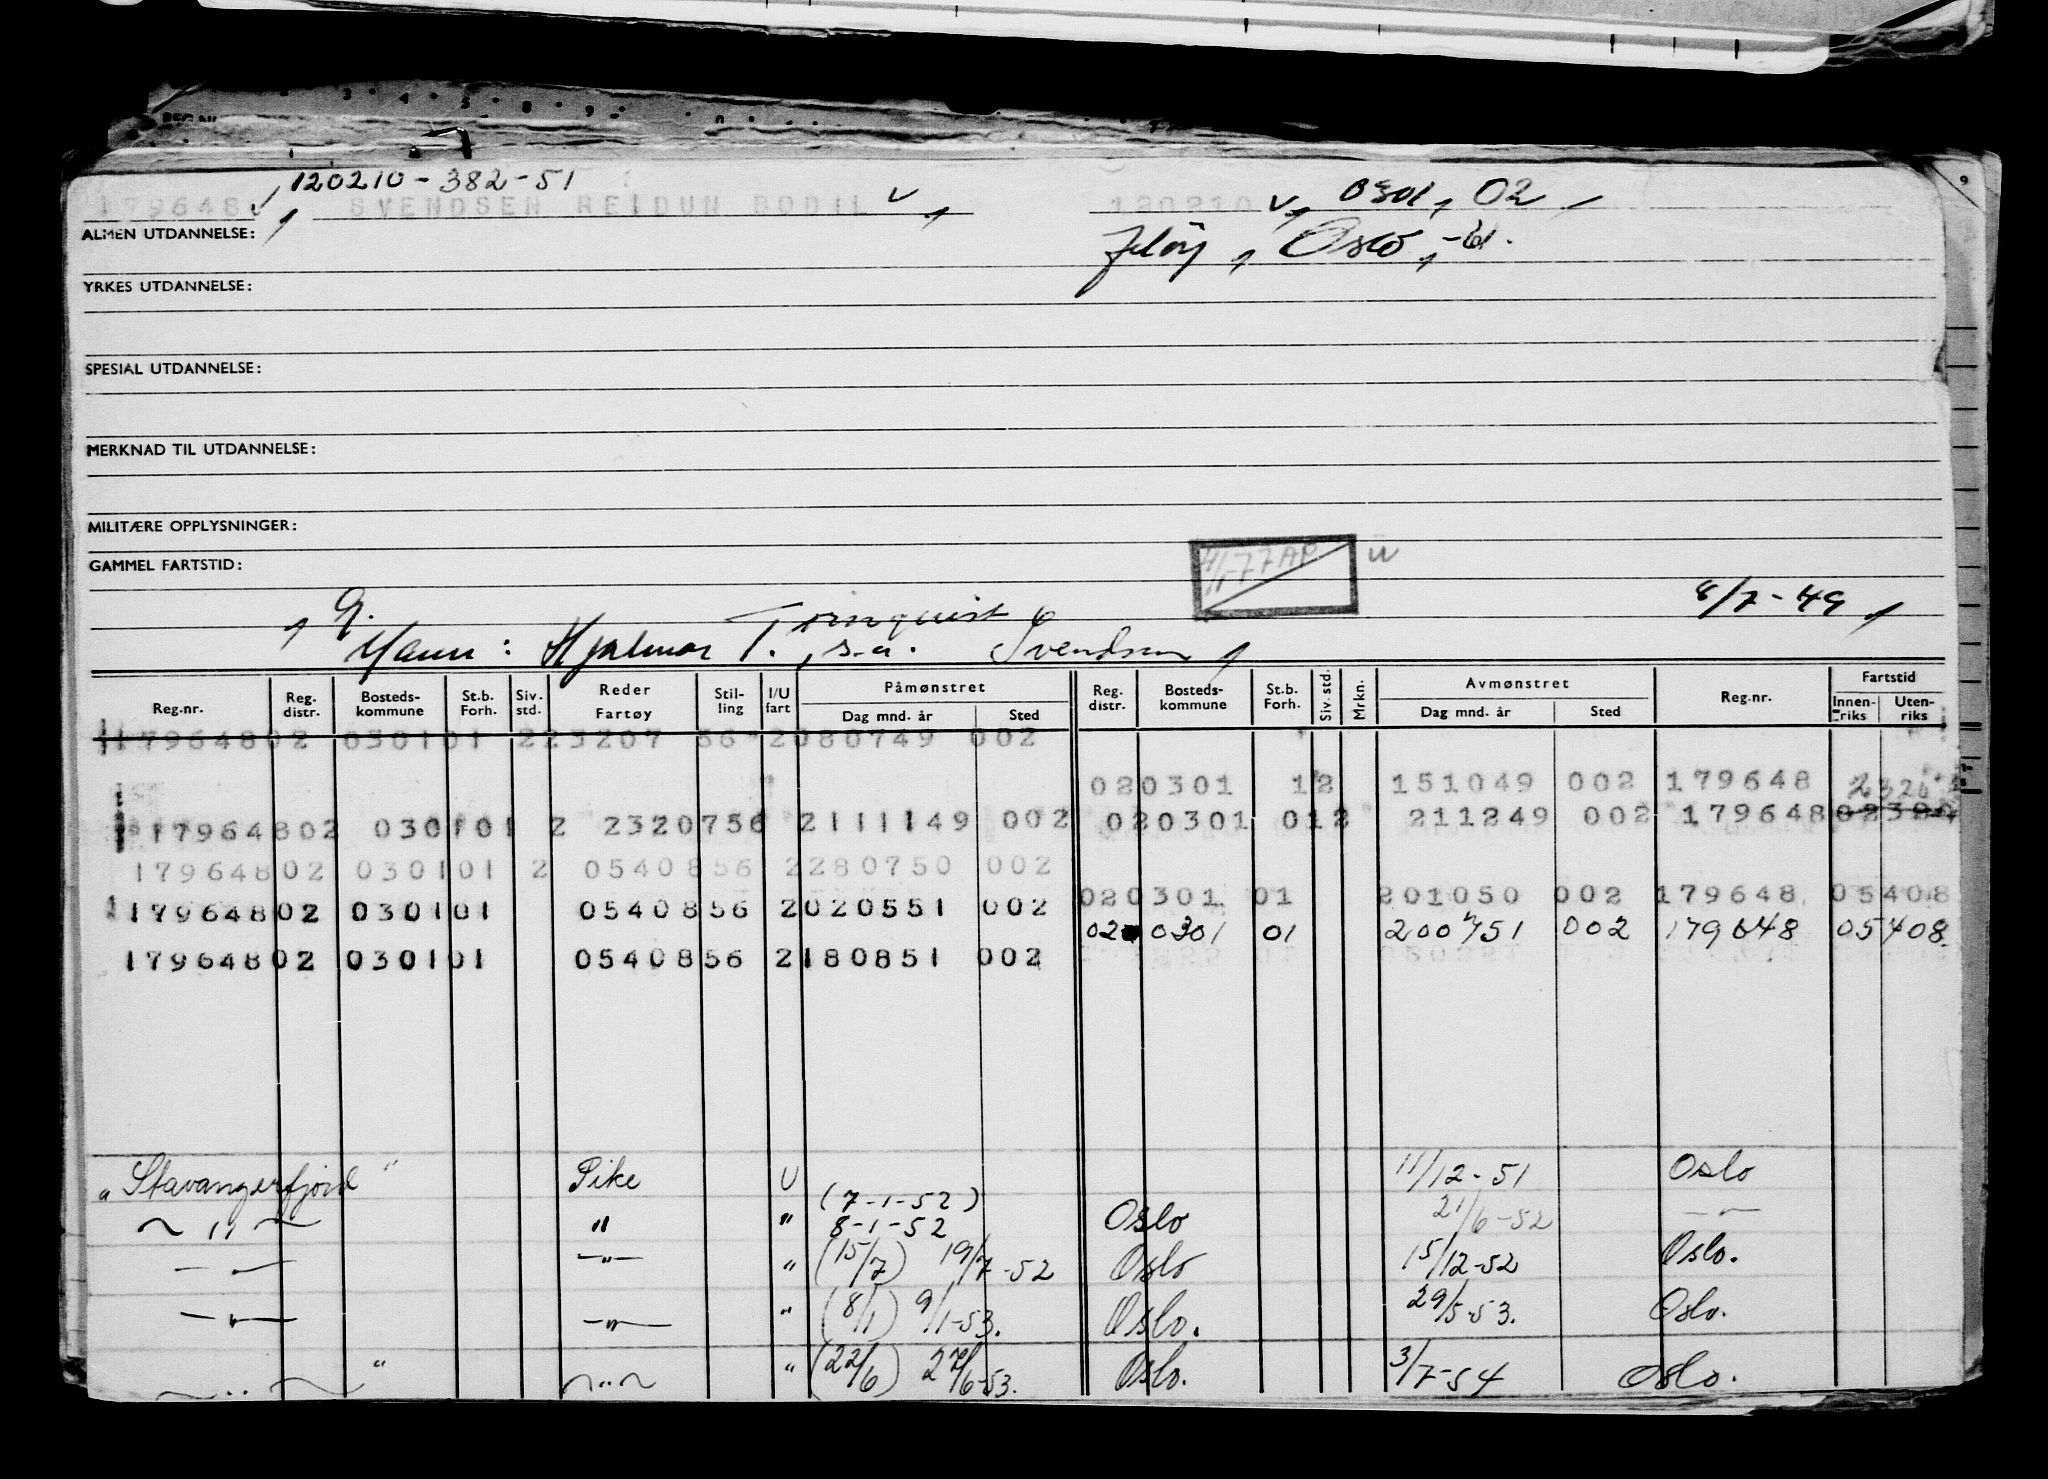 120210-382-51
179648 SVENDSEN REIDUN BODIL 120210 0301, 02
ALMEN UTDANNELSE: Jeløy, Oslo, -61.
YRKES UTDANNELSE:
SPESIAL UTDANNELSE:
MERKNAD TIL UTDANNELSE:
MILITÆRE OPPLYSNINGER:
GAMMEL FARTSTID:
8/7-49
Törnquist
Mann: Hjalmar T., s.a. Svendsen
Reg.nr. Reg. distr. Bosteds-kommune St.b. Forh. Siv. std. Reder Fartøy Stil-ling I/U fart Påmønstret Dag mnd. år Sted Reg. distr. Bosteds-kommune St.b. Forh. Siv. std. Mrkn. Avmønstret Dag mnd. år Sted Reg.nr. Fartstid Innen-riks Uten-riks
17964802 030101 223207 56 2080749 002
020301 12 151049 002 179648 2320
17964802 030101 2 2320756 2111149 002 020301 012 211249 002 179648
17964802 030101 2 0540856 2280750 002
020301 01 201050 002 179648 05408
17964802 030101 0540856 2020551 002
02 0301 01 200751 002 179648 05408
17964802 030101 0540856 2180851 002
"Stavangerfjord" Pike U 11/12-51 Oslo
(7-1-52)
" " " 8-1-52 Oslo 21/6-52 -"-
-"- -"- " (15/7) 19/7-52 Oslo 15/12-52 Oslo.
-"- -"- " (8/1) 9/1-53. Oslo. 29/5-53. Oslo.
" " " (22/6) Oslo. 3/7-54 Oslo.